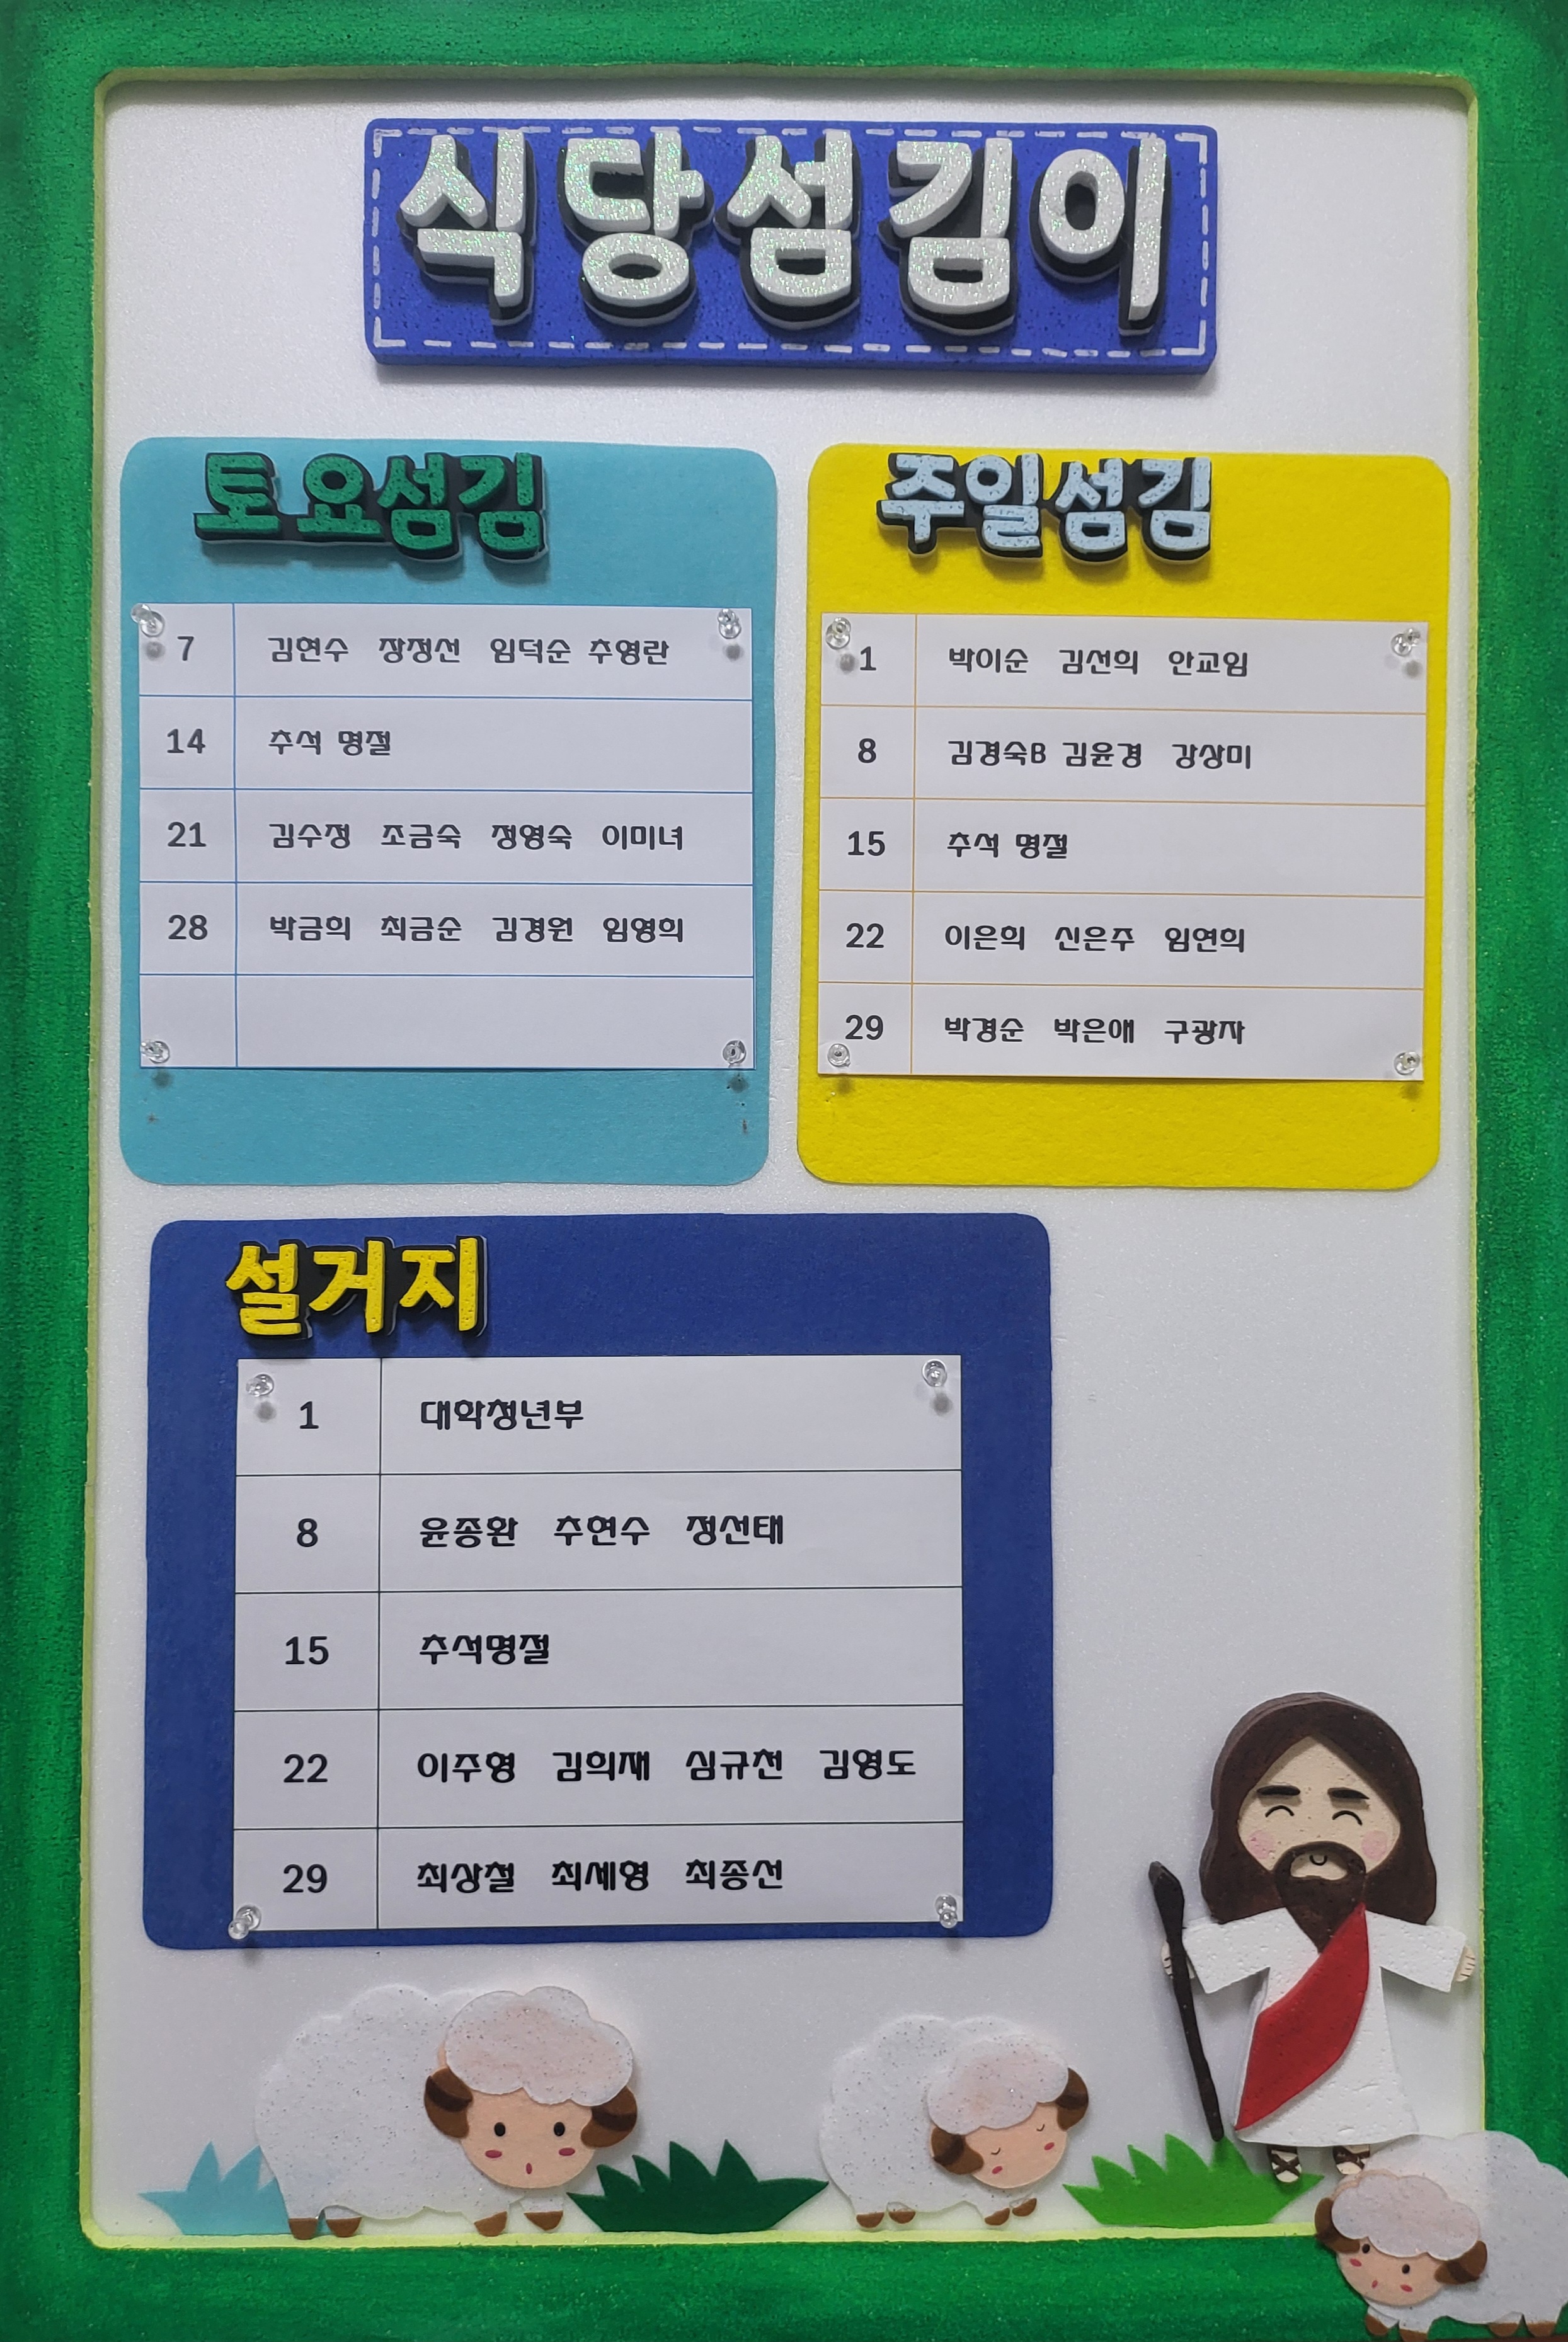 식당섬김이
토요섬김
7 김현수 장정선 임덕순 추영란
14 추석 명절
21 김수정 조금숙 정영숙 이미녀
28 박금희 최금순 김경원 임영희
주일섬김
1 박이순 김선희 안교임
8 김경숙B 김윤경 강상미
15 추석 명절
22 이은희 신은주 임연희
29 박경순 박은애 구광자
설거지
1 대학청년부
8 윤종환 추현수 정선태
15 추석명절
22 이주형 김희재 심규천 김영도
29 최상철 최세영 최종선